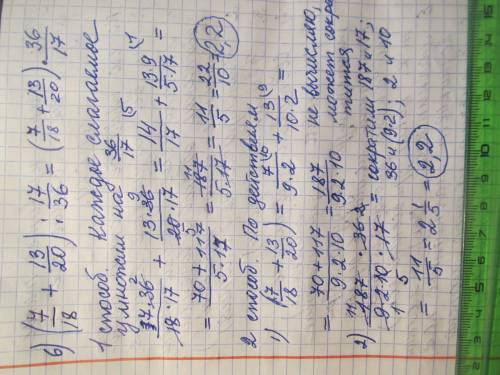 6) (7/18 + 13/20) : 17/36 = (7/18 + 13/20) · 36/17
1 способ. Каждое слагаемое
умножим на 36/17
7·36/18·17 + 13·36/20·17 = 14/17 + 13·9/5·17 =
= 70+117/5·17 = 187/5·17 = 11/5 = 22/10 = 2,2
2 способ. По действиям
1) (7/18 + 13/20) = 7/9·2 + 13/10·2 =
= 70+117/9·2·10 = 187/9·2·10 не вычислю,
может сокра-
тится
2) 187·36/9·2·10·17 = сократили 187 и 17;
36 и (9·2); 2 и 10
= 11/5 = 2 1/5 = 2,2